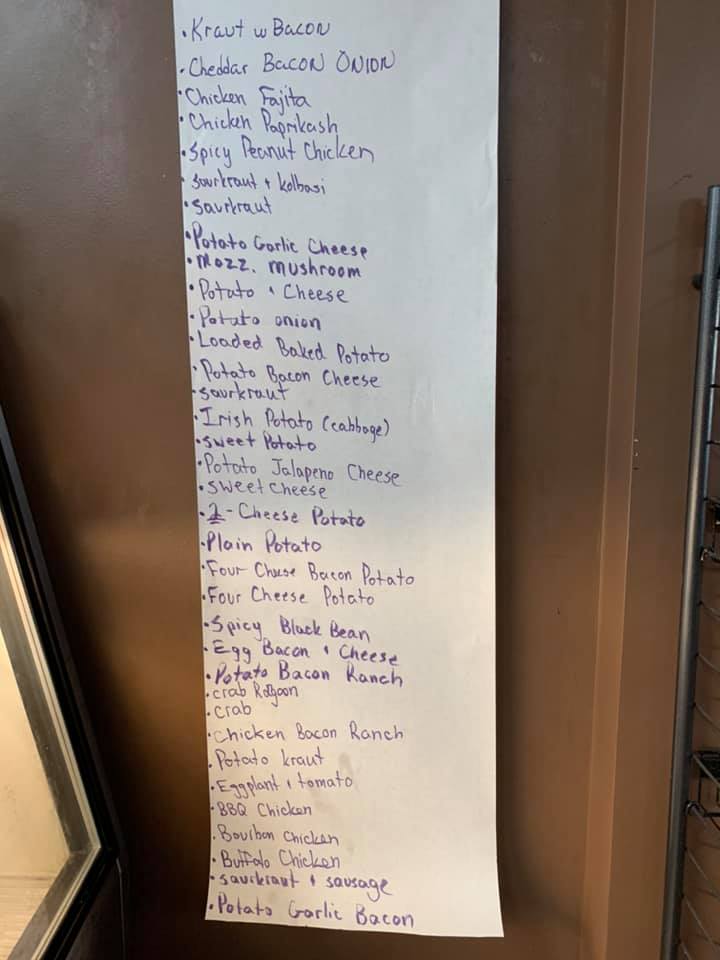 • Kraut w Bacon
• Cheddar Bacon Onion
• Chicken Fajita
• Chicken Paprikash
• Spicy Peanut Chicken
• Saurkraut + kolbasi
• Saurkraut
• Potato Garlic Cheese
• Mozz. mushroom
• Potato + Cheese
• Potato onion
• Loaded Baked Potato
• Potato Bacon Cheese
• Saurkraut
• Irish Potato (cabbage)
• Sweet Potato
• Potato Jalapeno Cheese
• Sweet Cheese
• 2 - Cheese Potato
• Plain Potato
• Four Cheese Bacon Potato
• Four Cheese Potato
• Spicy Black Bean
• Egg Bacon + Cheese
• Potato Bacon Ranch
• Crab Rangoon
• Crab
• Chicken Bacon Ranch
• Potato kraut
• Eggplant + tomato
• BBQ Chicken
• Bourbon Chicken
• Buffalo Chicken
• Saurkraut + sausage
• Potato Garlic Bacon